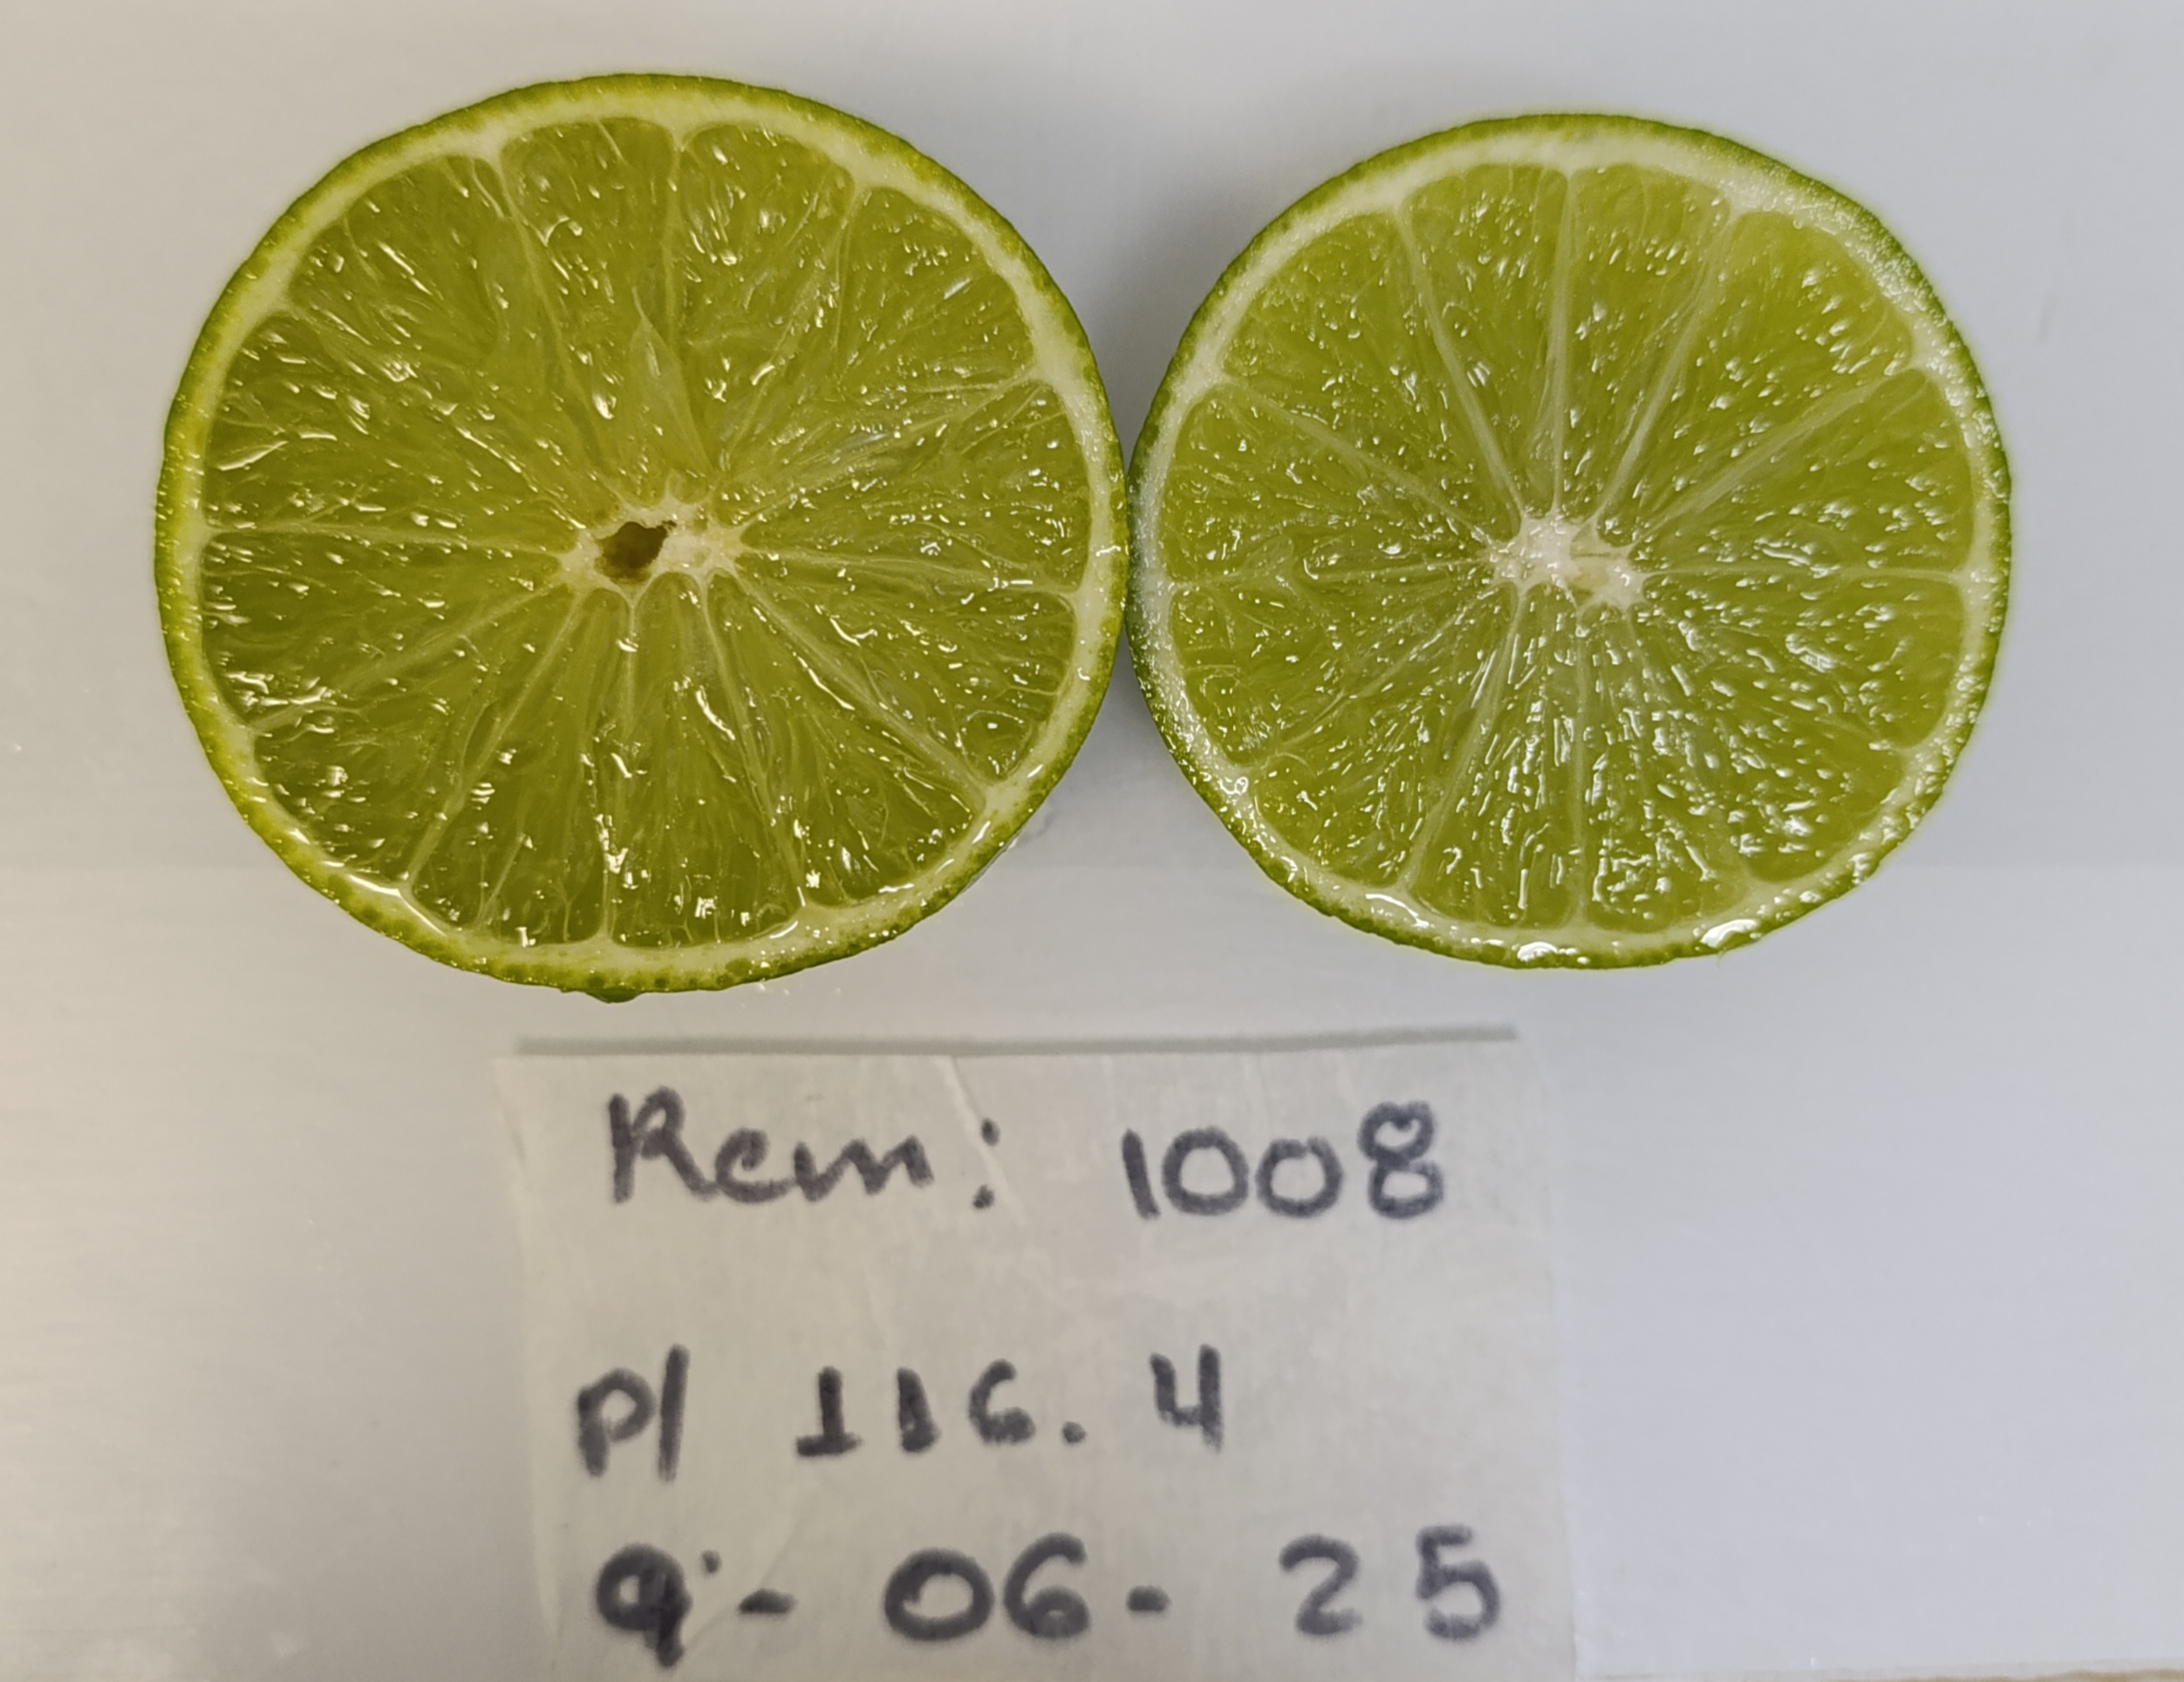 Rem: 1008
P/ 116.4
9-06-25